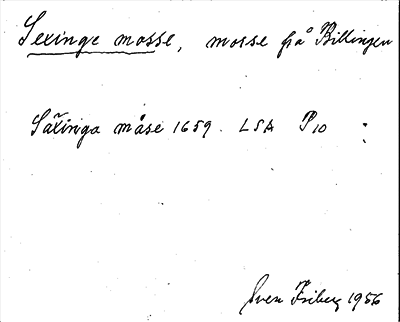 Sexinge mosse, mosse på Billingen
Säxinga måse 1659. LSA P10 :
Sven Friberg 1956